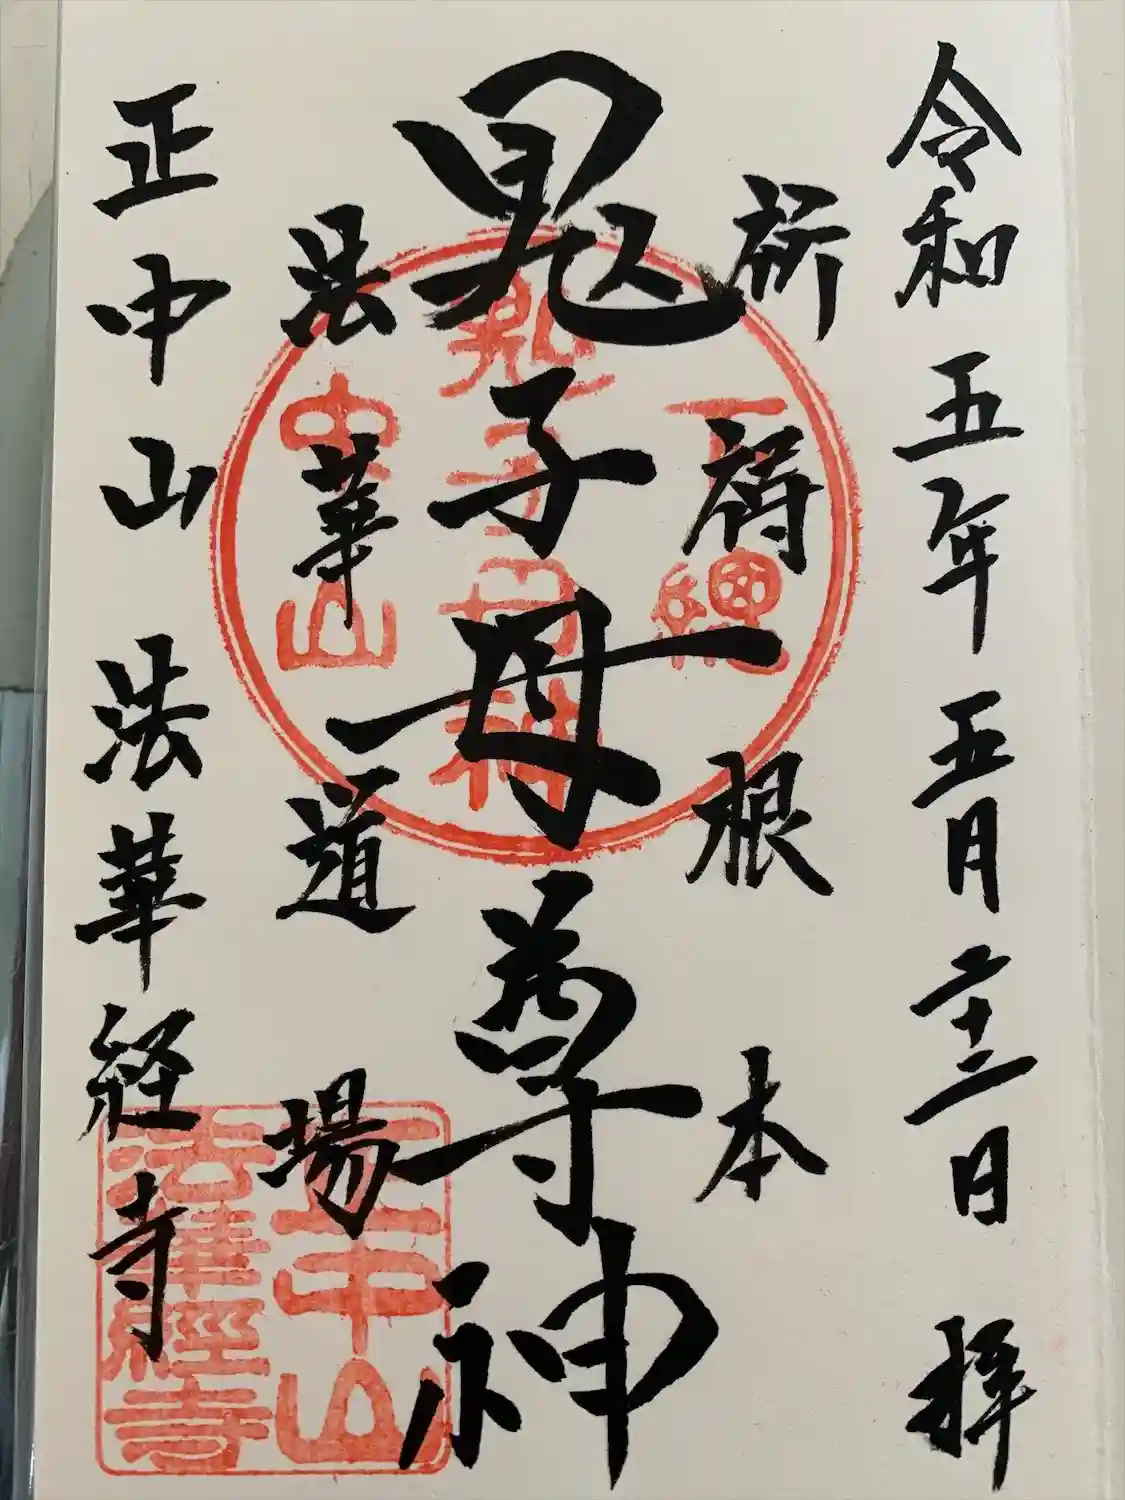 令和五年五月二十二日 拝
祈祷根本
鬼子母尊神
法華道場
正中山 法華経寺
下總
鬼子母神
中山
正中山
法華經寺